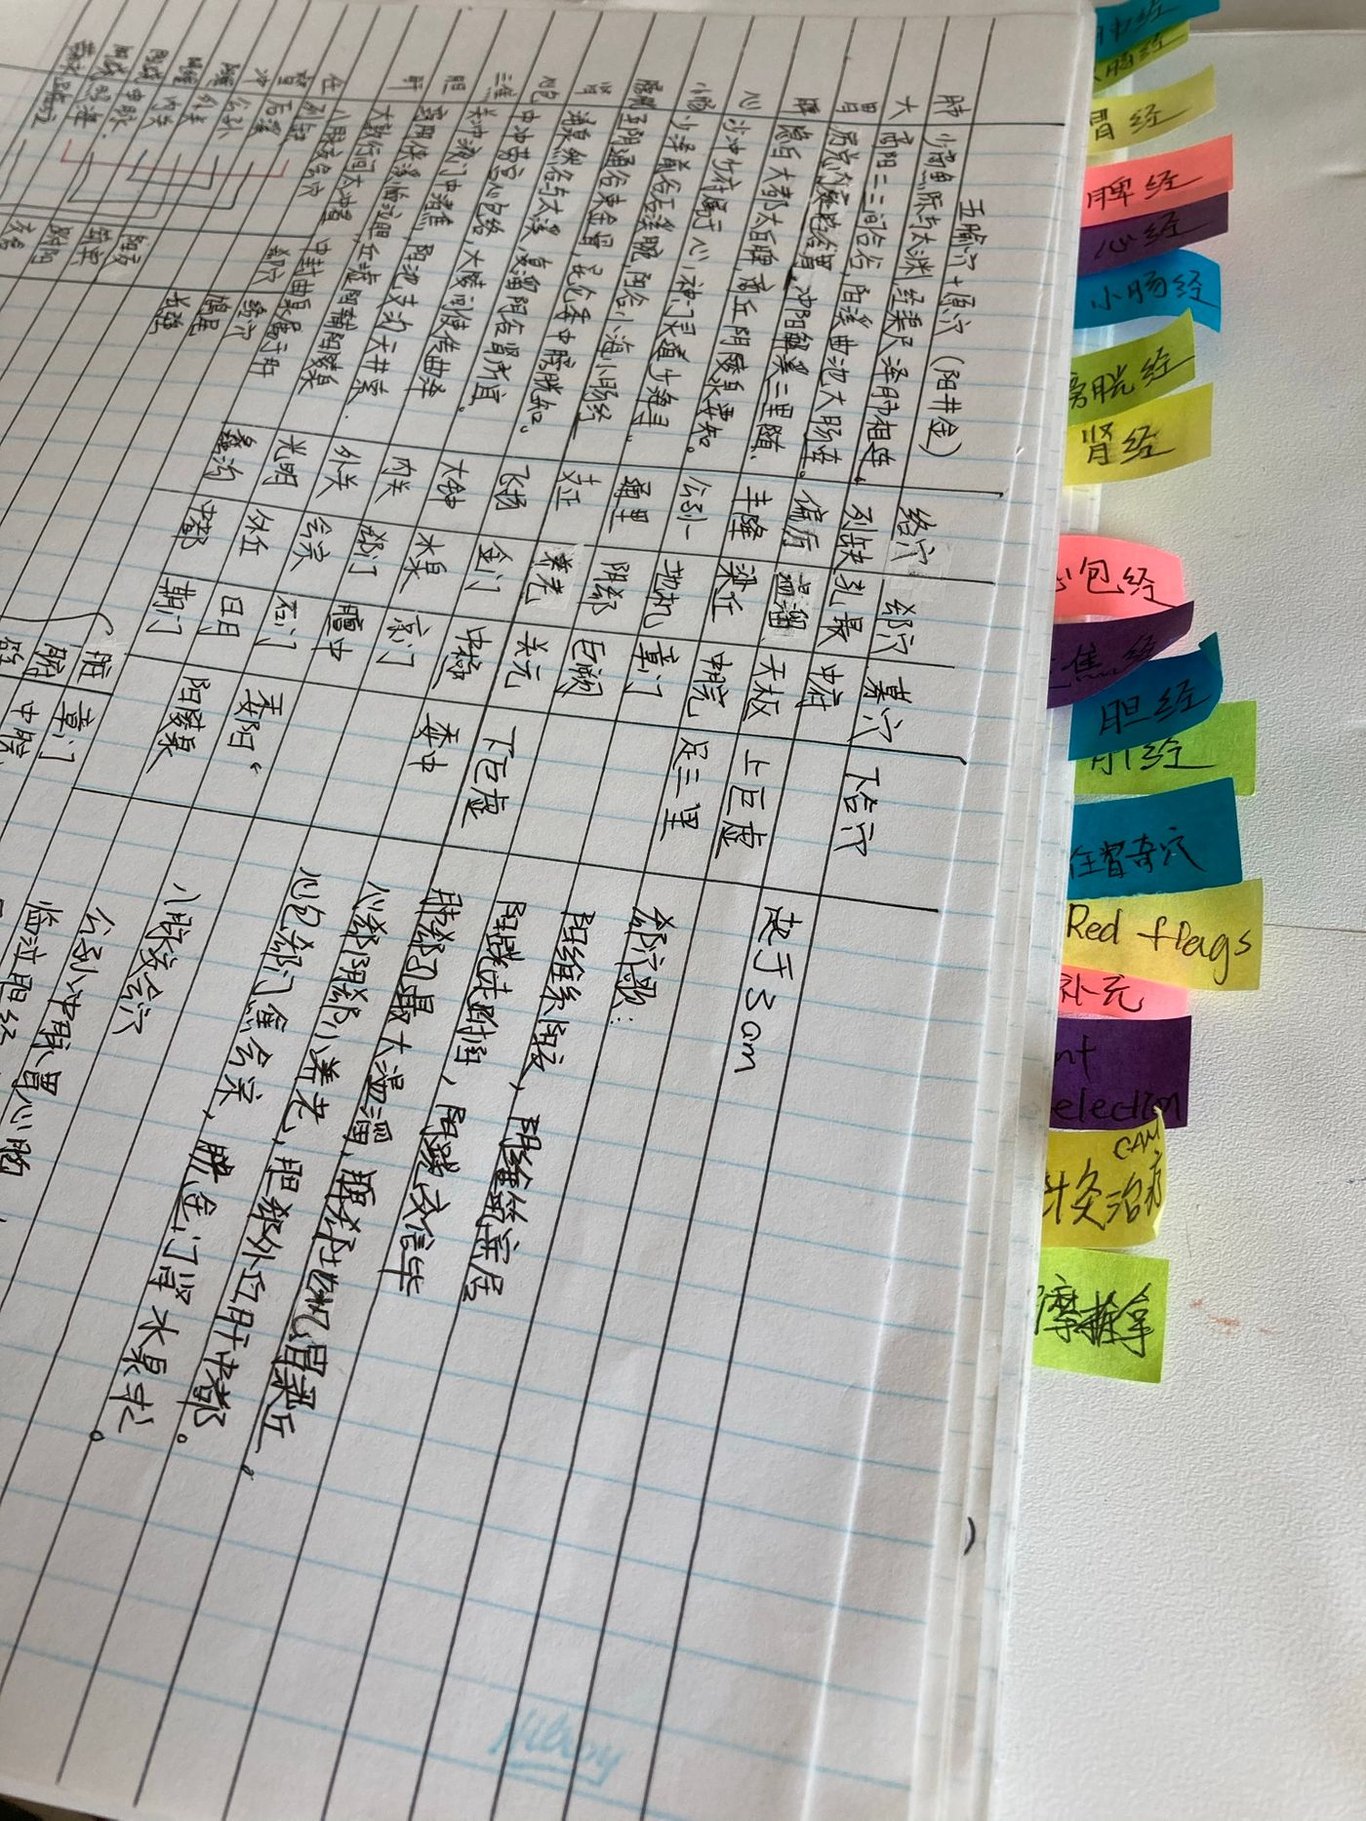 五腧穴+原穴（阳井金） 络穴 郄穴 募穴 下合穴
肺 少商鱼际与太渊，经渠尺泽肺相连。 列缺 孔最 中府
大 商阳二三间合谷，阳溪曲池大肠连。 偏历 温溜 天枢 上巨虚
胃 冲阳解溪三里随。 丰隆 梁丘 中脘 足三里
脾 隐白大都太白脾，商丘阴陵泉要知。 公孙 地机 章门
心 少冲少府属于心，神门灵道少海寻。 通里 阴郄 巨阙
小肠 少泽前谷后溪腕，阳谷小海小肠经 支正 养老 关元 下巨虚
膀胱 至阴通谷束金骨，昆仑委中膀胱知。 飞扬 金门 中极 委中
肾 涌泉然谷与太溪，复溜阴谷肾所宜。 大钟 水泉 京门
包 中冲劳宫心包络，大陵间使传曲泽 内关 郄门 膻中
三焦 关冲液门中渚焦，阳池支沟天井索. 外关 会宗 石门 委阳
胆 窍阴侠溪临泣胆，丘墟阳辅阳陵泉 光明 外丘 日月 阳陵泉
肝 大敦行间太冲看 中封曲泉属于肝 蠡沟 中都 期门
八脉交会穴 郄穴 络穴
任 列缺
督 后溪
冲 公孙
外关
内关
申脉
照海
阳交
筑宾
鸠尾
长强
脏 章门
腑 中脘
起于3am
郄穴歌：
阳维系阳交，阴维筑宾居
阳跷走跗阳，阴跷交信毕
肺郄孔最大温溜，脾郄地机胃梁丘，
心郄阴郄小养老，胆郄外丘肝中都。
心包郄门焦会宗，胱金门肾水泉求。
八脉交会穴
公孙冲脉胃心胸
大肠经
胃经
脾经
心经
小肠经
膀胱经
肾经
心包经
焦经
胆经
肝经
任督奇穴
Red flags
补充
election
CAM
针灸治疗
摩推拿